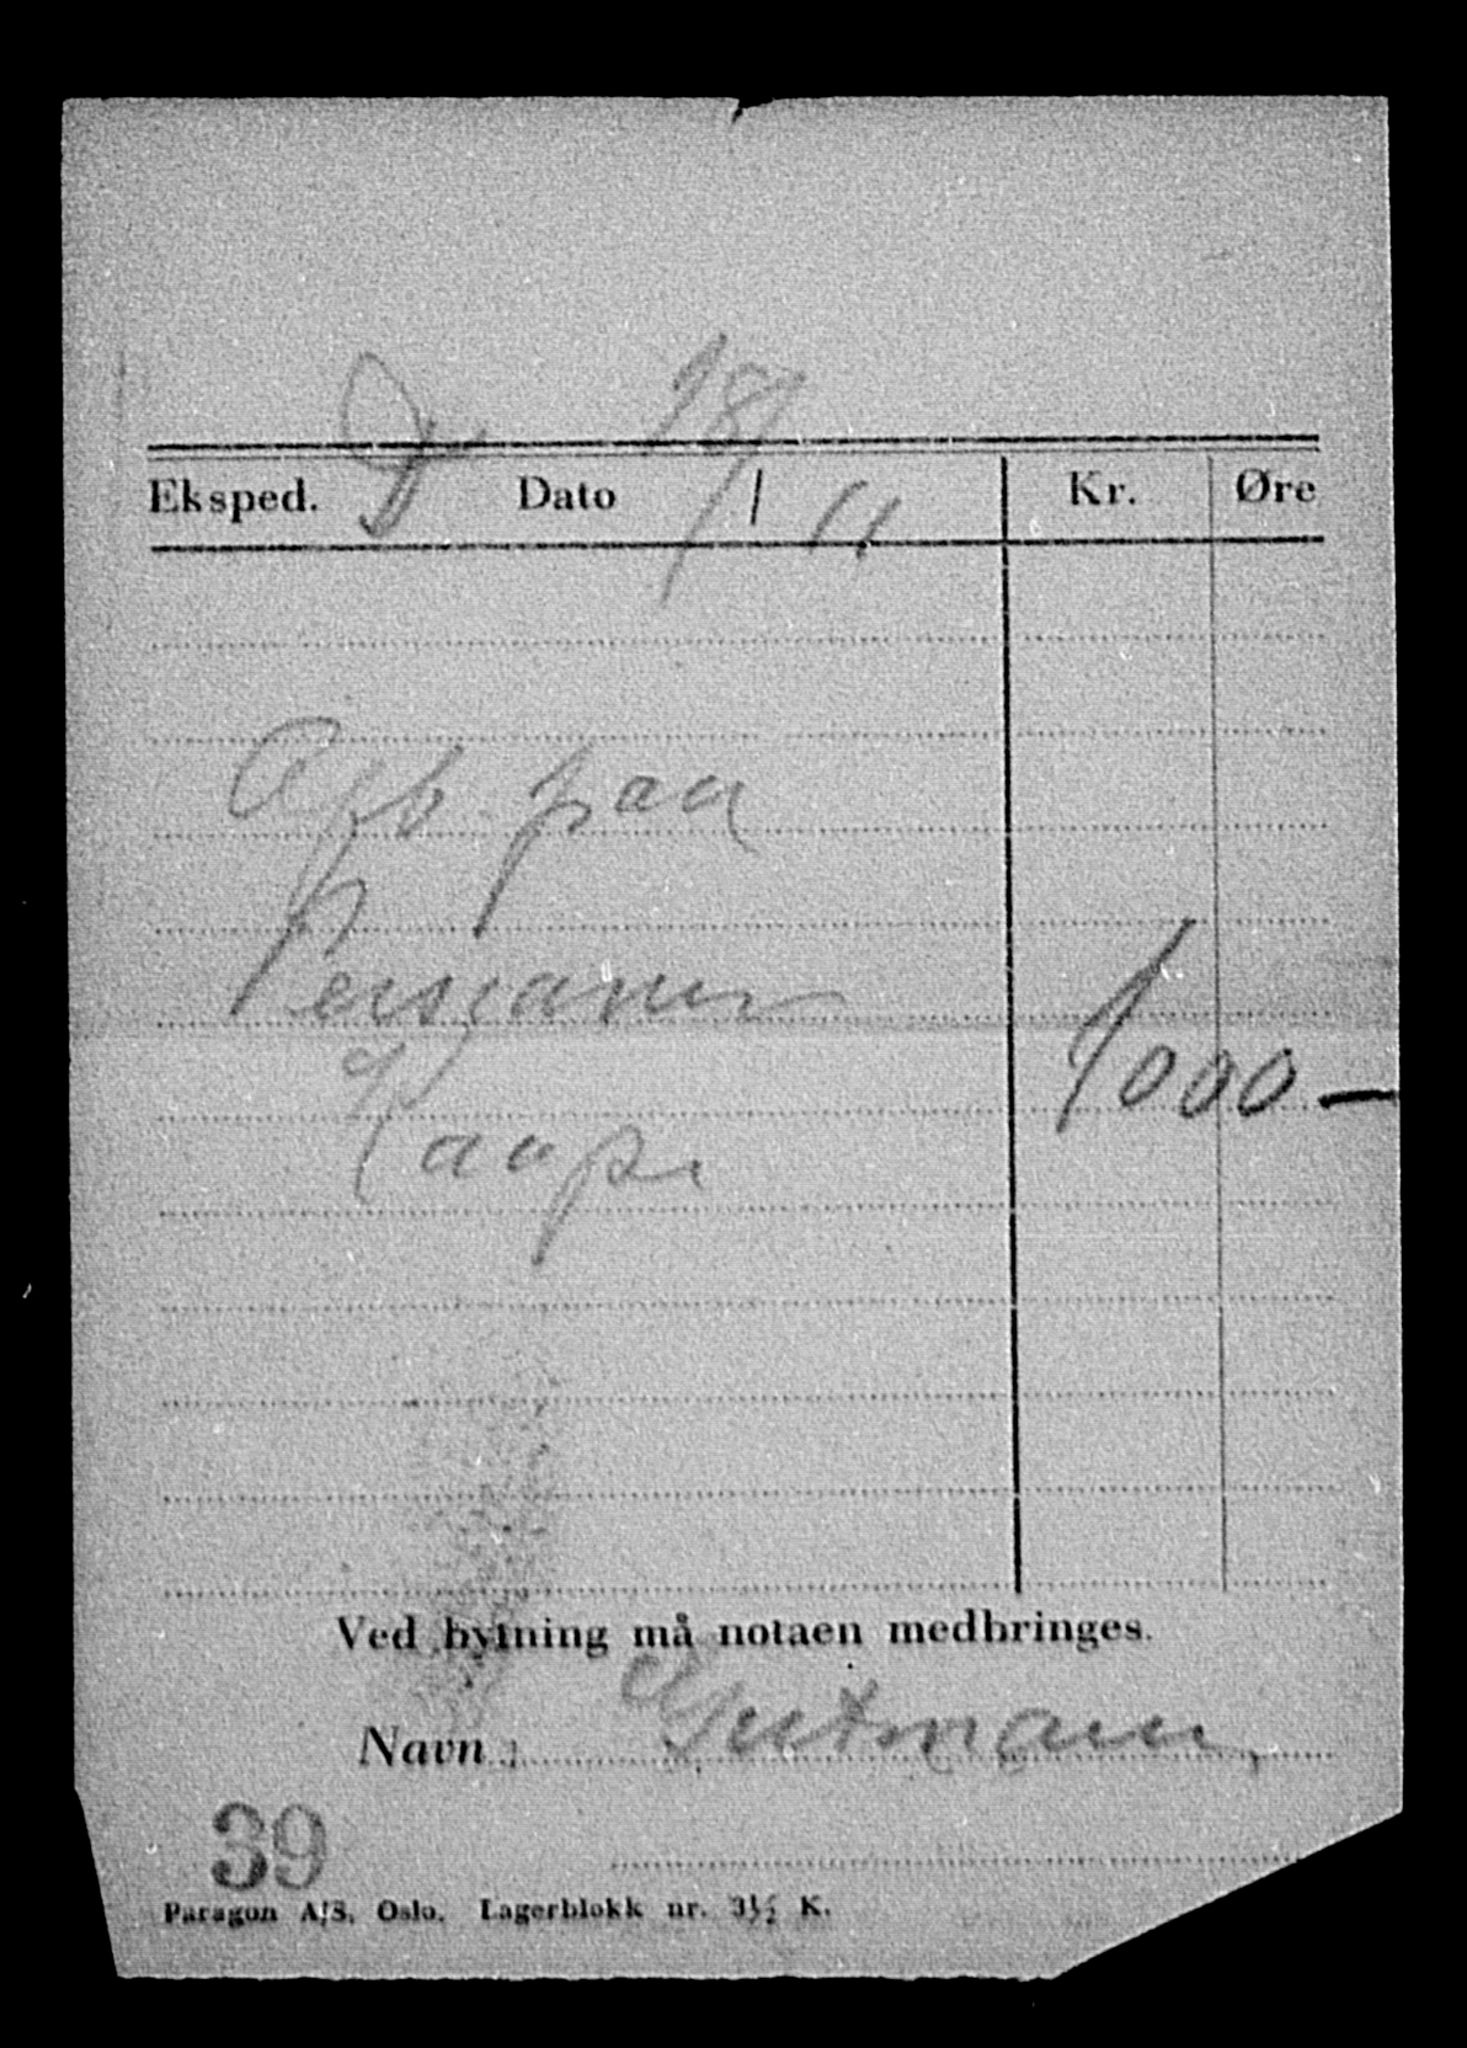 18/
Eksped. Dato / 11 Kr. Øre
Afb. paa
Persianer
Kaape 1000 —
Ved bytning må notaen medbringes.
Navn: Gutmann
39
Paragon A/S, Oslo. Lagerblokk nr. 3½ K.